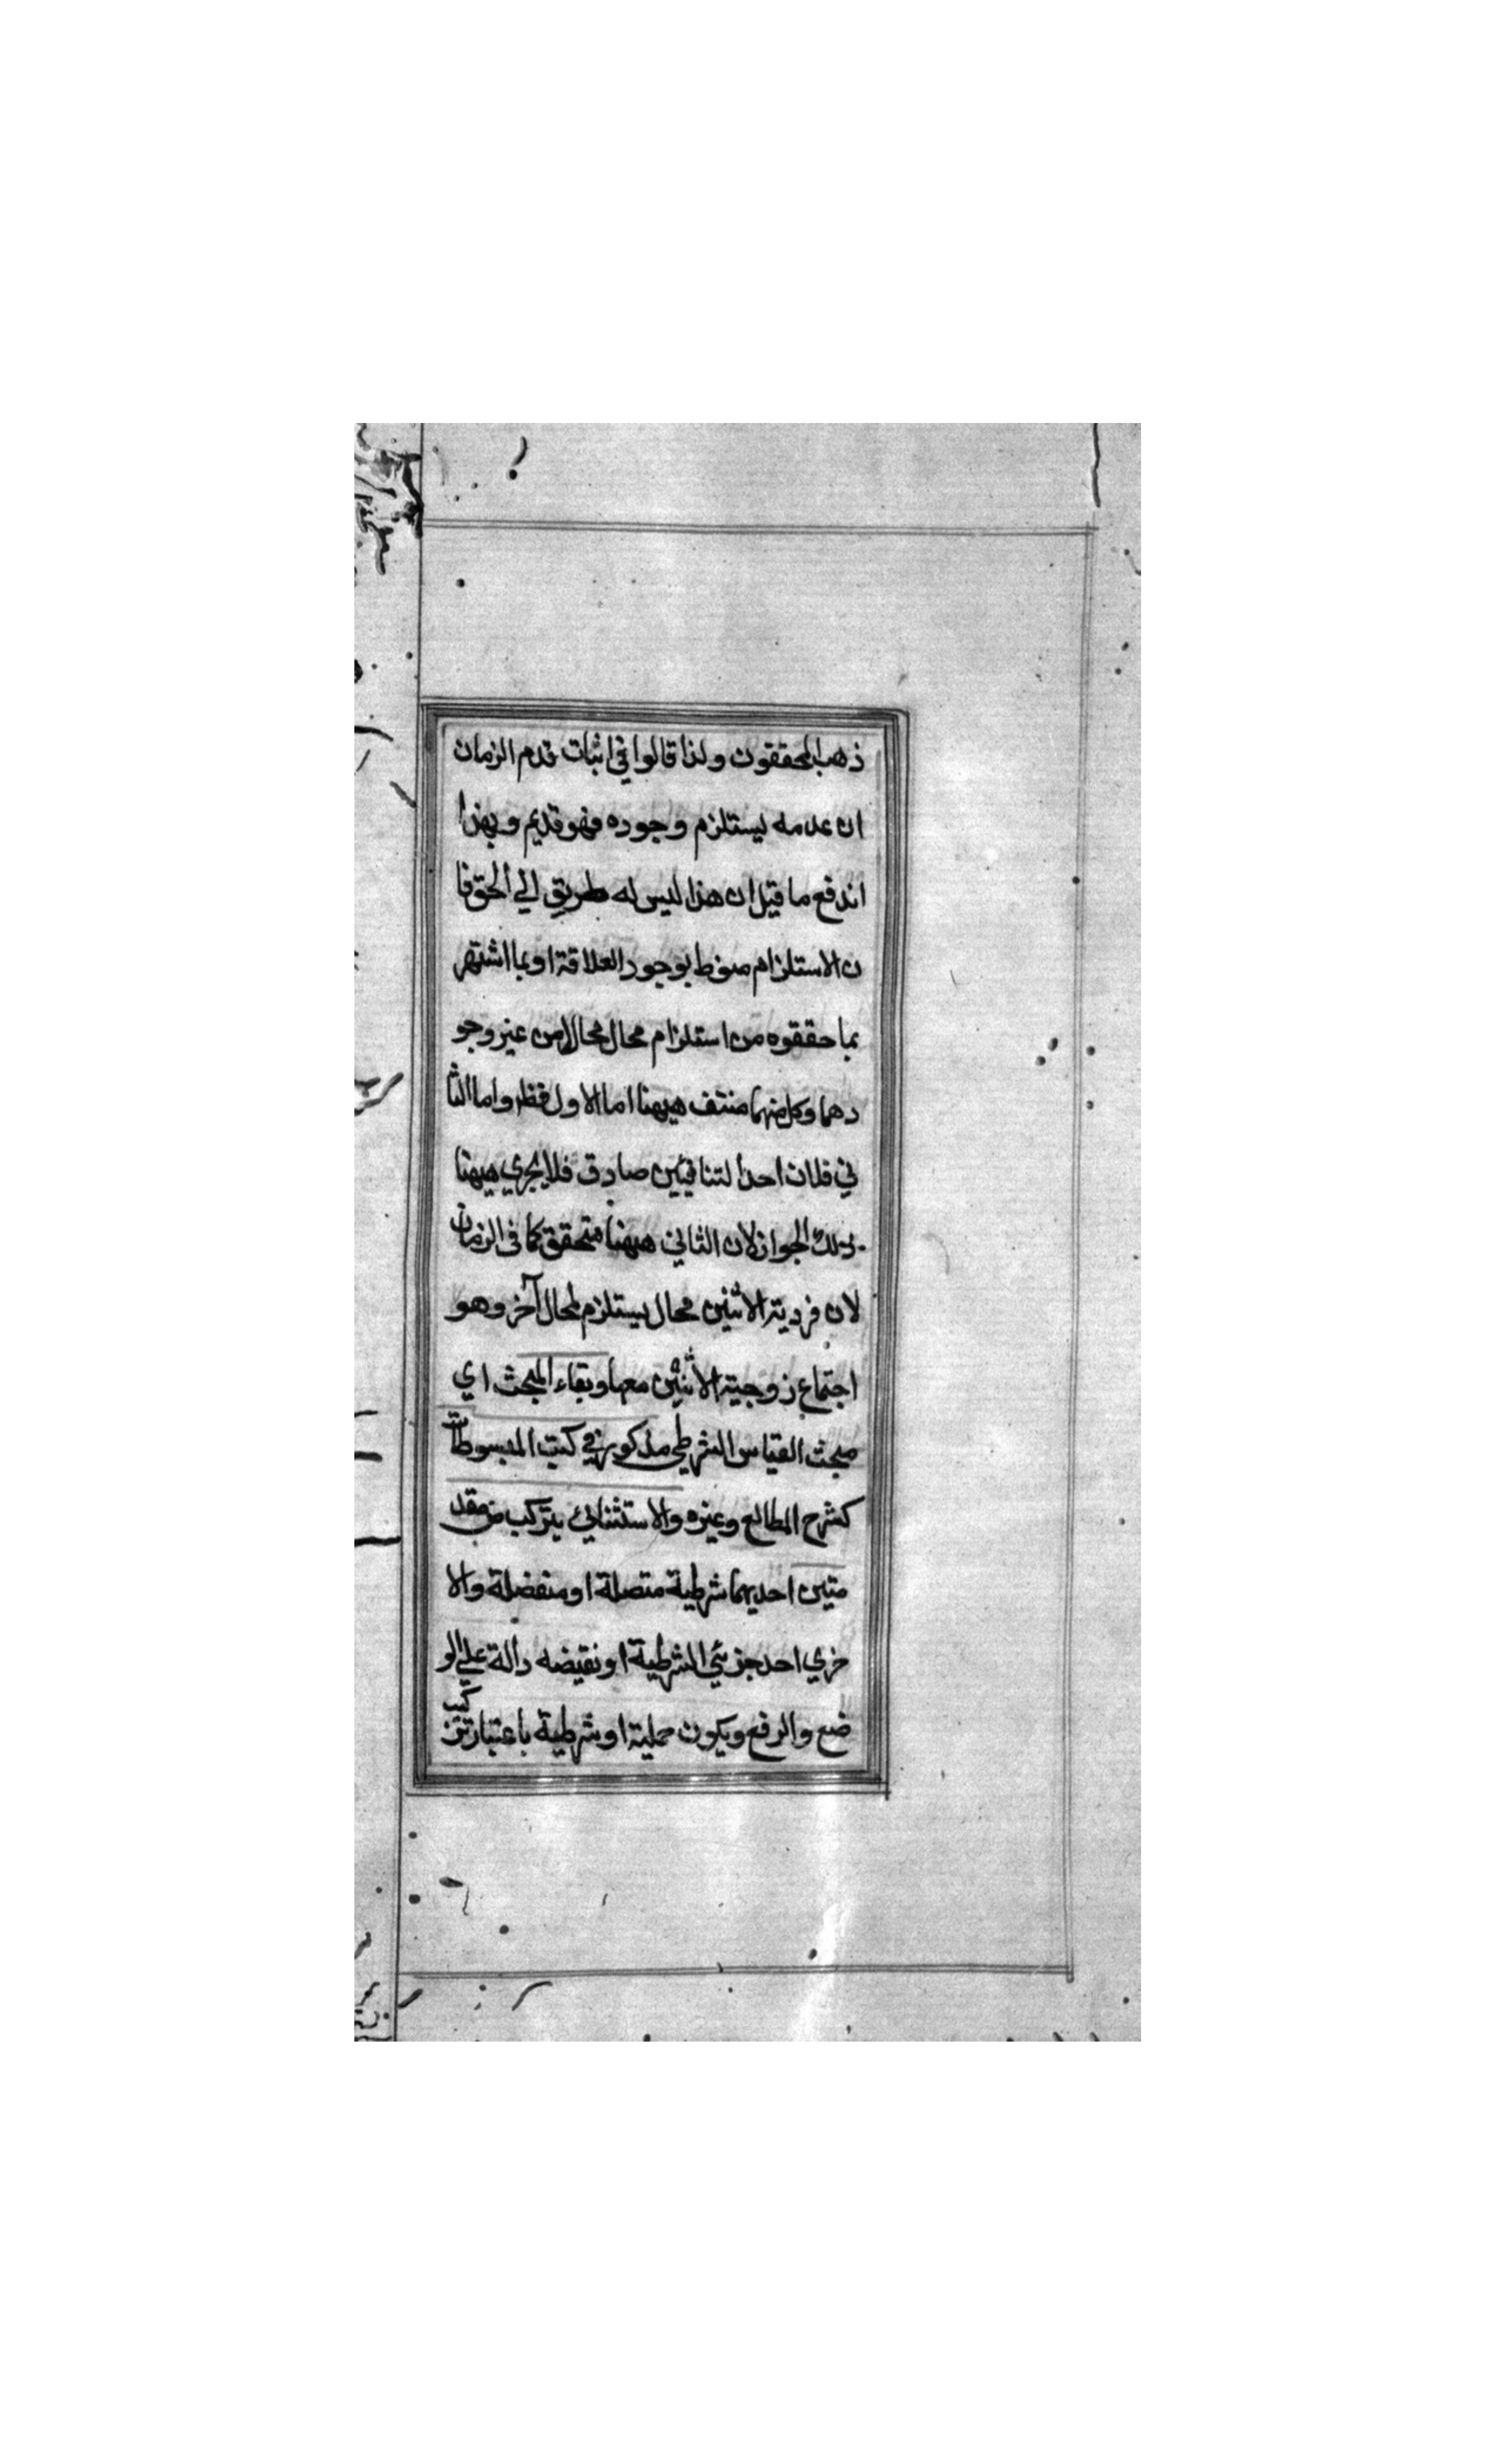 ذهب المحققون ولذا قالوا في اثبات قدم الزمان
ان عدمه يستلزم وجوده فهو قديم وبهذا
اندفع ما قيل ان هذا ليس له طريق الي الحق فا
ن الاستلزام منوط بوجود العلاقة او بما اشتهر
بما حققوه من استلزام محال محالا من غير وجو
دهما وكل منهما منتف هيهنا اما الاول فظهر واما الثا
ني فلان احد المتنافيين صادق فلا يجري هيهنا
ذلك الجواز لان الثاني هيهنا متحقق كما في الزمان
لان فردية الاثنين محال يستلزم لمحال آخر وهو
اجتماع زوجية الاثنين معها وبقاء المبحث اي
مبحث القياس الشرطي مذكور في كتب المبسوطات
كشرح المطالع وغيره والاستثنائي يتركب من مقد
متين احديهما شرطية متصلة او منفصلة والا
خري احد جزئي الشرطية او نقيضه دالة علي الو
ضع والرفع ويكون حملية او شرطية باعتبار تركيب